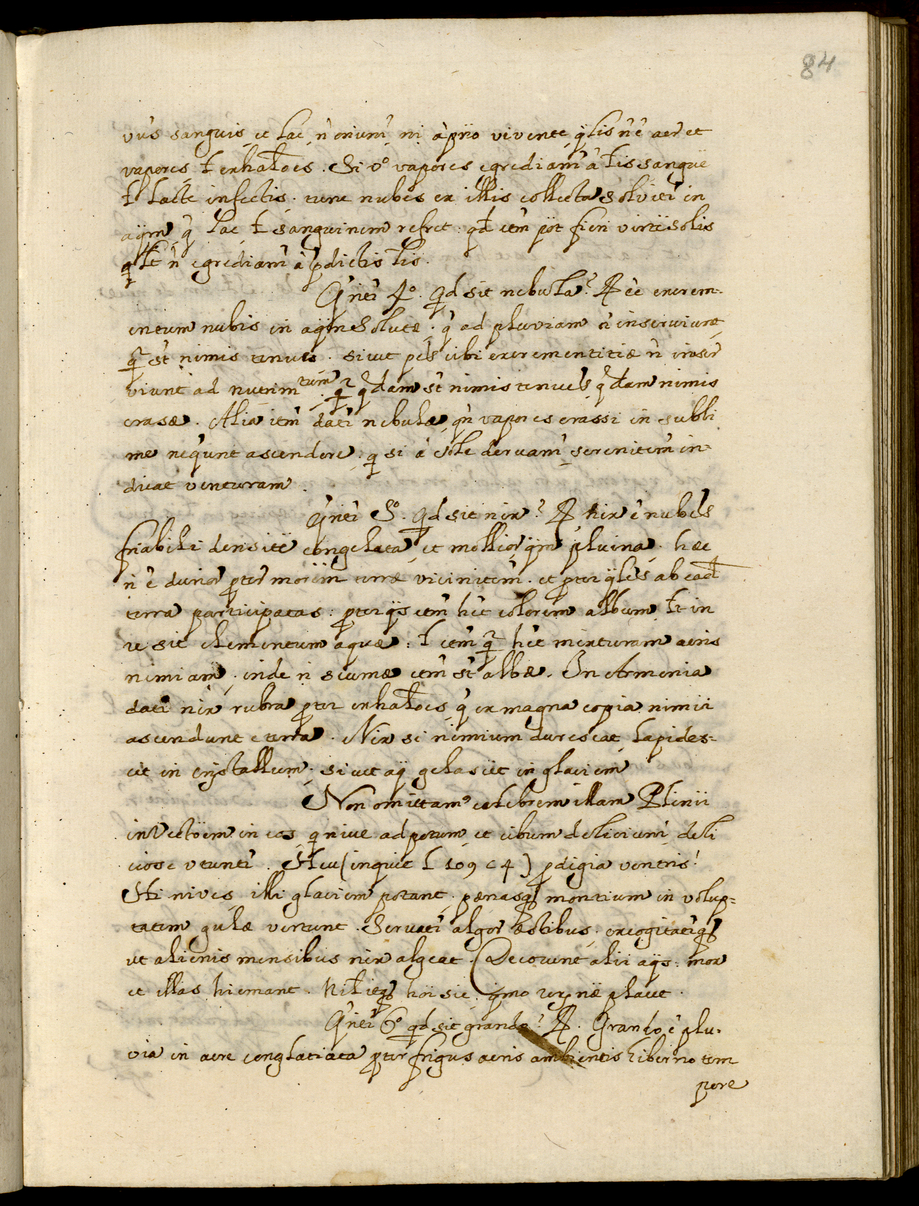 84
vus sanguis, et lac n̄ oriunt̄ ni à prio vivente q̄lis n̄ ē aer et
vapores ł exhalōes. Si vº vapores egrediant̄ à łis sangue
ł lacte infectis, tunc nubes ex illis collecta solvet̄ in
aqm̄ q̄ lac ł sanguinem refret: qd̄ etm̄ pot̄ fieri virte solis
n̄ egrediant̄ à p̄dictis
Q̄ret̄ 4º. Qd sit nebula? R ēe excrem-
entum nubis in aqm̄ solutæ. q̄ ad pluviam n̄ inserviunt
q̄ st̄ nimis tenues. sicut ptes cibi excrementitiæ n̄ inser
viunt ad nutrimtum q̄ q̄dam st̄ nimis tenues q̄dam nimis
crasæ. Alia etm̄ dat̄ nebula qn̄ vapores crassi in subli
me neq̄unt ascendere. q si à sole dervant̄ serenitem̄ in-
dicat venturam.
Q̄ret̄ 5º. Qd sit nix? R Nix ē nubes
friabili densite congelata et mollior qm̄ pluina. hæc
n̄ ē durior pter morem terræ vicinitem̄. et pter qles ab ead
terra participatas: pter qs etm̄ het colorem album lt in
re sit elementum aquæ: ł etm̄ q̄ het mixturam aeris
nimiam, inde n̄ scumæ etm̄ st̄ albæ. In Armenia
dat̄ nix rubra pter exhalōes q̄ ex magna copia nimii
ascendunt e terra. Nix si nimium durescat, lapides-
cit in cristallum. sicut aq̄ gelascit in glaciem
Non omittamº celebrem illam Plinii
invectōem in eos q̄ nive ad potum et cibum deliciunt̄ deli
ciose utunt̄. Heu (inquit l 109 c 4) prodigia ventris!
Hi nives illi glaciem potant. pænasq̄ montium in volup-
tatem gulæ vertunt. Servat̄ algor æstibus, excogitat̄q̄
ut alienis mensibus nix algeat. Decoqunt alii aq̄s: mox
et illas hiemant. Nil itaq̄ hoi sic qomo rer̄ næ placet.
Q̄ret̄ 6º qd sit grando? R. Grando ē plu-
via in aere conglatiata pter frigus aeris ambientis hiberno tem
pore